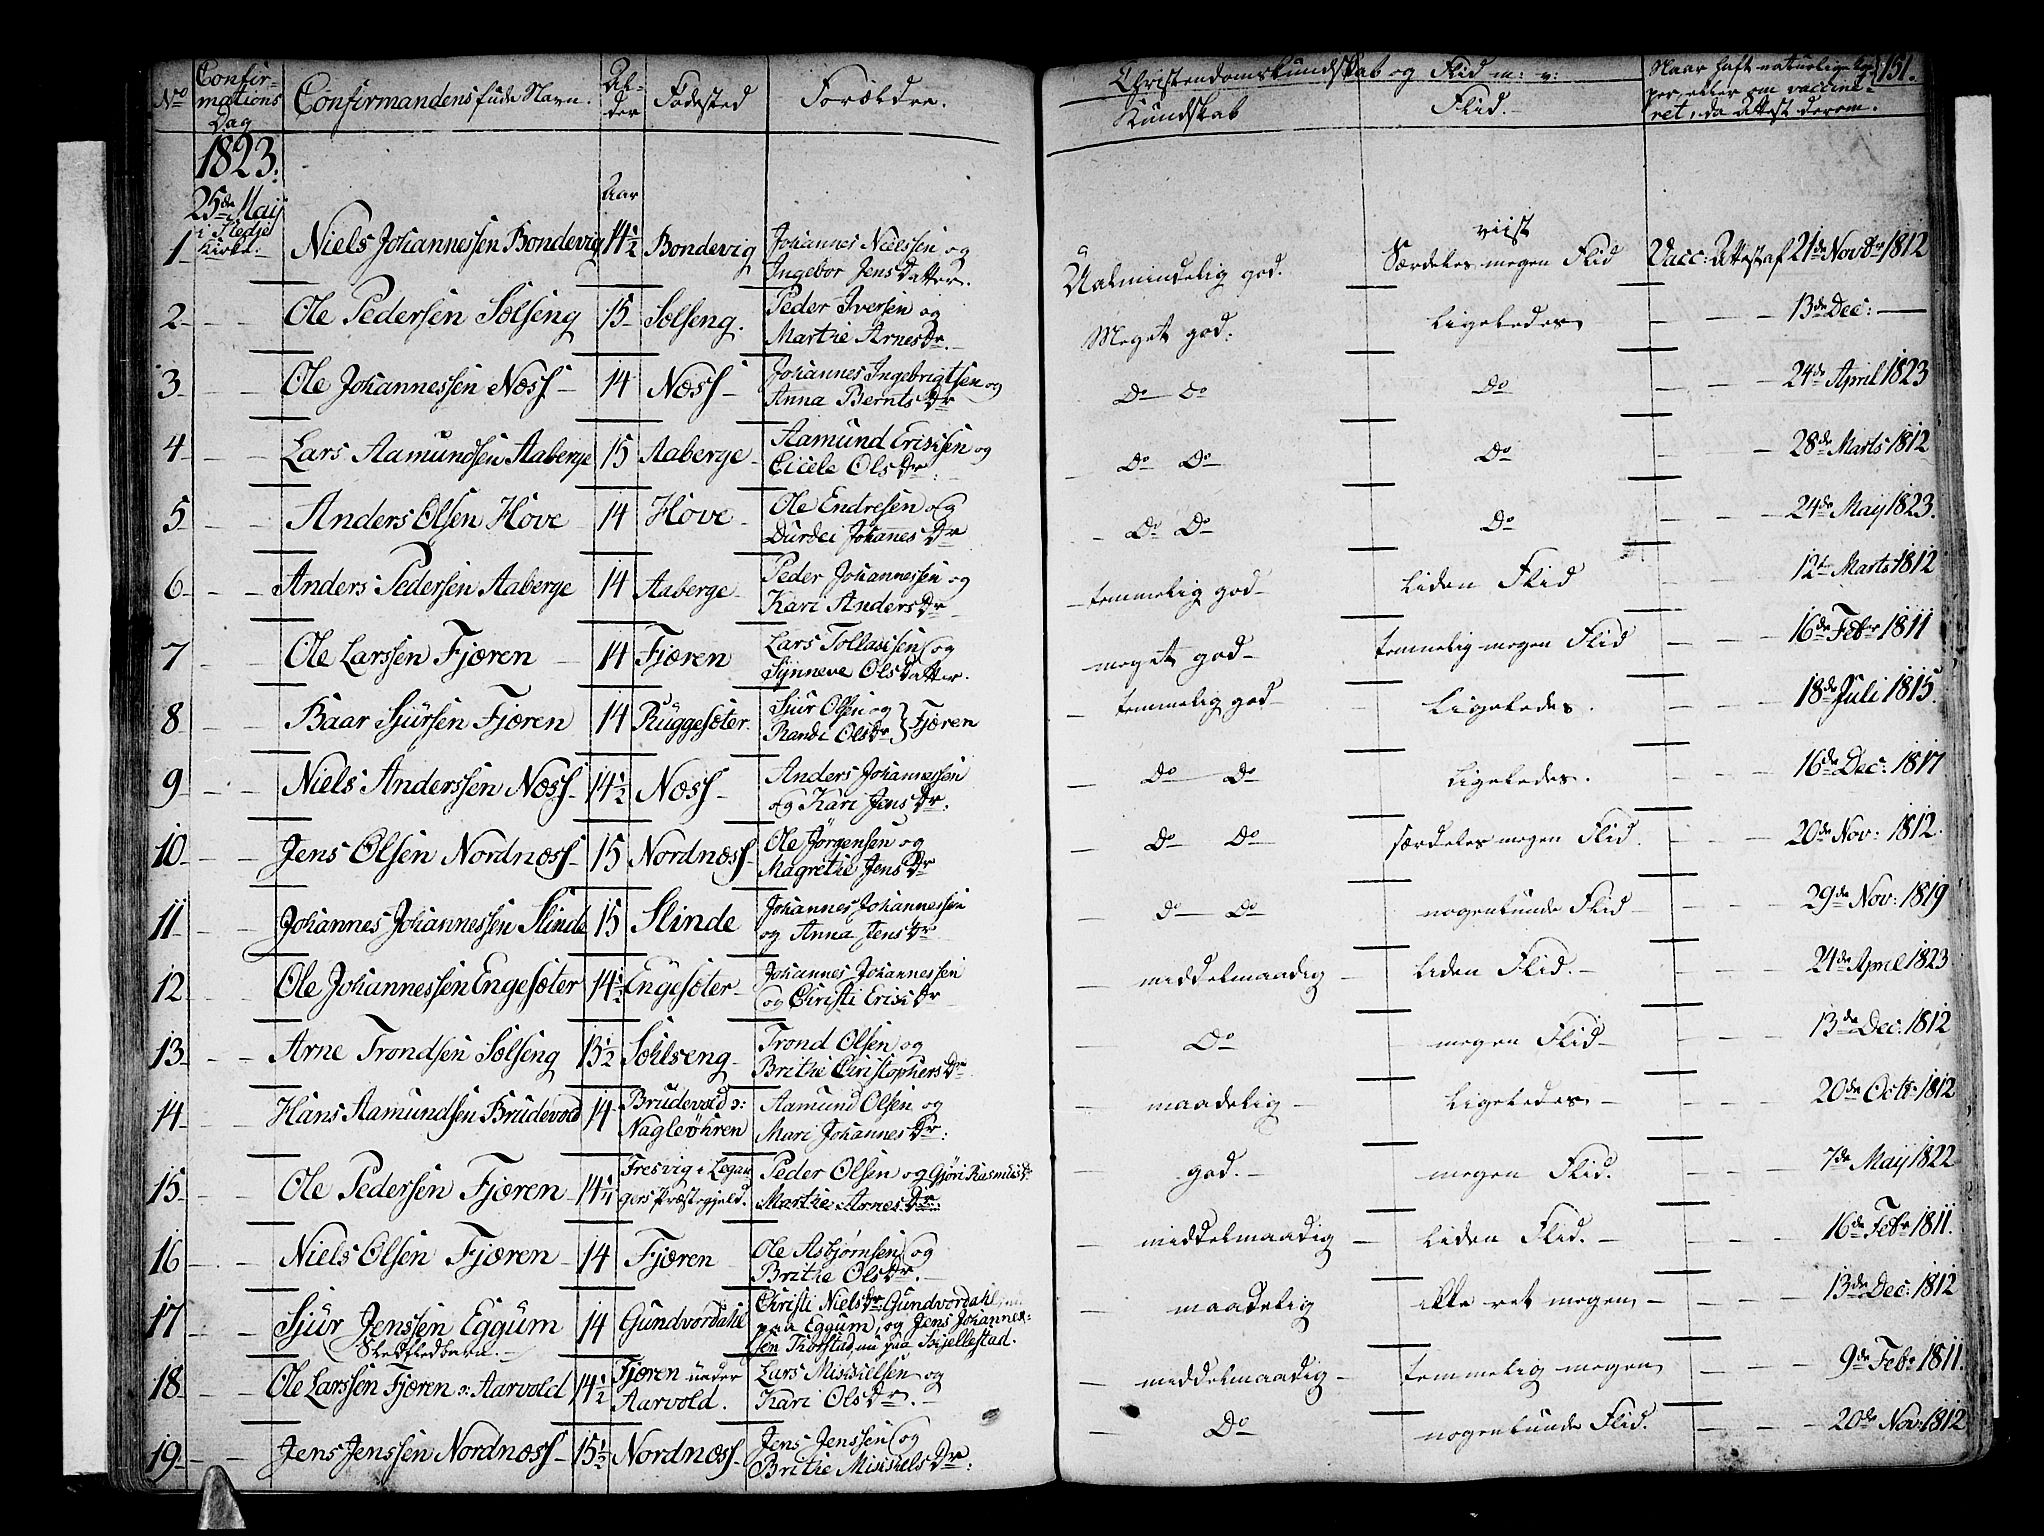 No Confirmations Dag Confirmandens fude Navn. Alder Fødested Forældre. Christendomskundskab og Flid m: v: Kundskab Flid. Naar haft naturlige kopper eller om vaccineret, da Attest derom. 151.
1823.
25de Maij i Stedje Kirke. Aar
1 Niels Johannessen Bondevig 14½ Bondevig Johannes Nielssen og Ingebor JensDatter. Ualmindelig god. viist Særdeles megen Flid Vacc: Attest af 21de Novbr 1812
2 Ole Pedersen Sølseng 15 Sølseng. Peder Iversen og Marthe ArnesDr. Meget god. Ligeledes 13de Dec:
3 Ole Johannessen Næss 14 Næss Johannes Ingebrigtsen og Anna BerntsDr Do Do Do 24de April 1823
4 Lars Aamundsen Aaberge 15 Aaberge Aamund Ericksen og Cicele OlsDr Do Do Do 28de Marts 1812
5 Anders Olsen Hove 14 Hove Ole Endresen og Durdei JohanesDr Do Do Do 24de Maij 1823.
6 Anders Pedersen Aaberge 14 Aaberge Peder Johannessen og Kari AndersDr temmelig god Liden Flid 12te Marts 1812
7 Ole Larssen Fjæren 14 Fjæren Lars Tollacksen og Synneve OlsDatter. meget god temmelig megen Flid 16de Febr 1811
8 Baar Sjursen Fjæren 14 Ruggesæter. Sjur Olsen og Randi OlsDr } Fjæren temmelig god Ligeledes. 18de Juli 1815.
9 Niels Anderssen Næss 14½ Næss Anders Johannessen og Kari JensDr. Do Do Ligeledes. 16de Dec: 1817
10 Jens Olsen Nordnæss 15 Nordnæss Ole Jørgensen og Magrethe JensDr Do Do særdeles megen Flid. 20de Nov: 1812.
11 Johannes Johannessen Slinde 15 Slinde Johannes Johannessen og Anna JensDr Do Do nogenlunde Flid 29de Nov: 1819
12 Ole Johannessen Engesæter 14½ Engesæter Johannes Johannessen og Christi EricksDr middelmaadig Liden Flid. 24de April 1823
13 Arne Trondsen Sølseng 13½ Sohlseng Trond Olsen og Brithe ChristophersDr Do megen Flid 13de Dec: 1812
14 Hans Aamundsen Brudevold 14 Brudevold ɔ: Nagleøhren Aamund Olsen og Mari JohannesDr: maadelig Ligeledes 20de Octb: 1812
15 Ole Pedersen Fjæren 14¼ Fresvig i Leganger Præstegjeld. Peder Olsen og Gjøri Rasmusdr Marthe ArnesDr: god. megen Flid. 7de Maij 1822
16 Niels Olsen Fjæren 14 Fjæren Ole Asbjørnsen og Brithe OlsDr. middelmaadig Liden Flid. 16de Febr 1811.
17 Sjur Jenssen Eggum 14 Gundvordahl Christi NielsDr Gundvordahl paa Eggum, og Jens Johannessen Thorstad nu paa Skjellestad. maadelig ikke ret megen 13de Dec: 1812
(Skedfødbarn.
18 Ole Larssen Fjæren ɔ: Aarvold 14½ Fjæren under Aarvold. Lars Mickelsen og Kari OlsDr. middelmaadig temmelig megen 9de Febr 1811.
19 Jens Jenssen Nordnæss 15½ Nordnæss Jens Jenssen og Brithe MickelsDr. Do nogenlunde Flid. 20de Nov: 1812